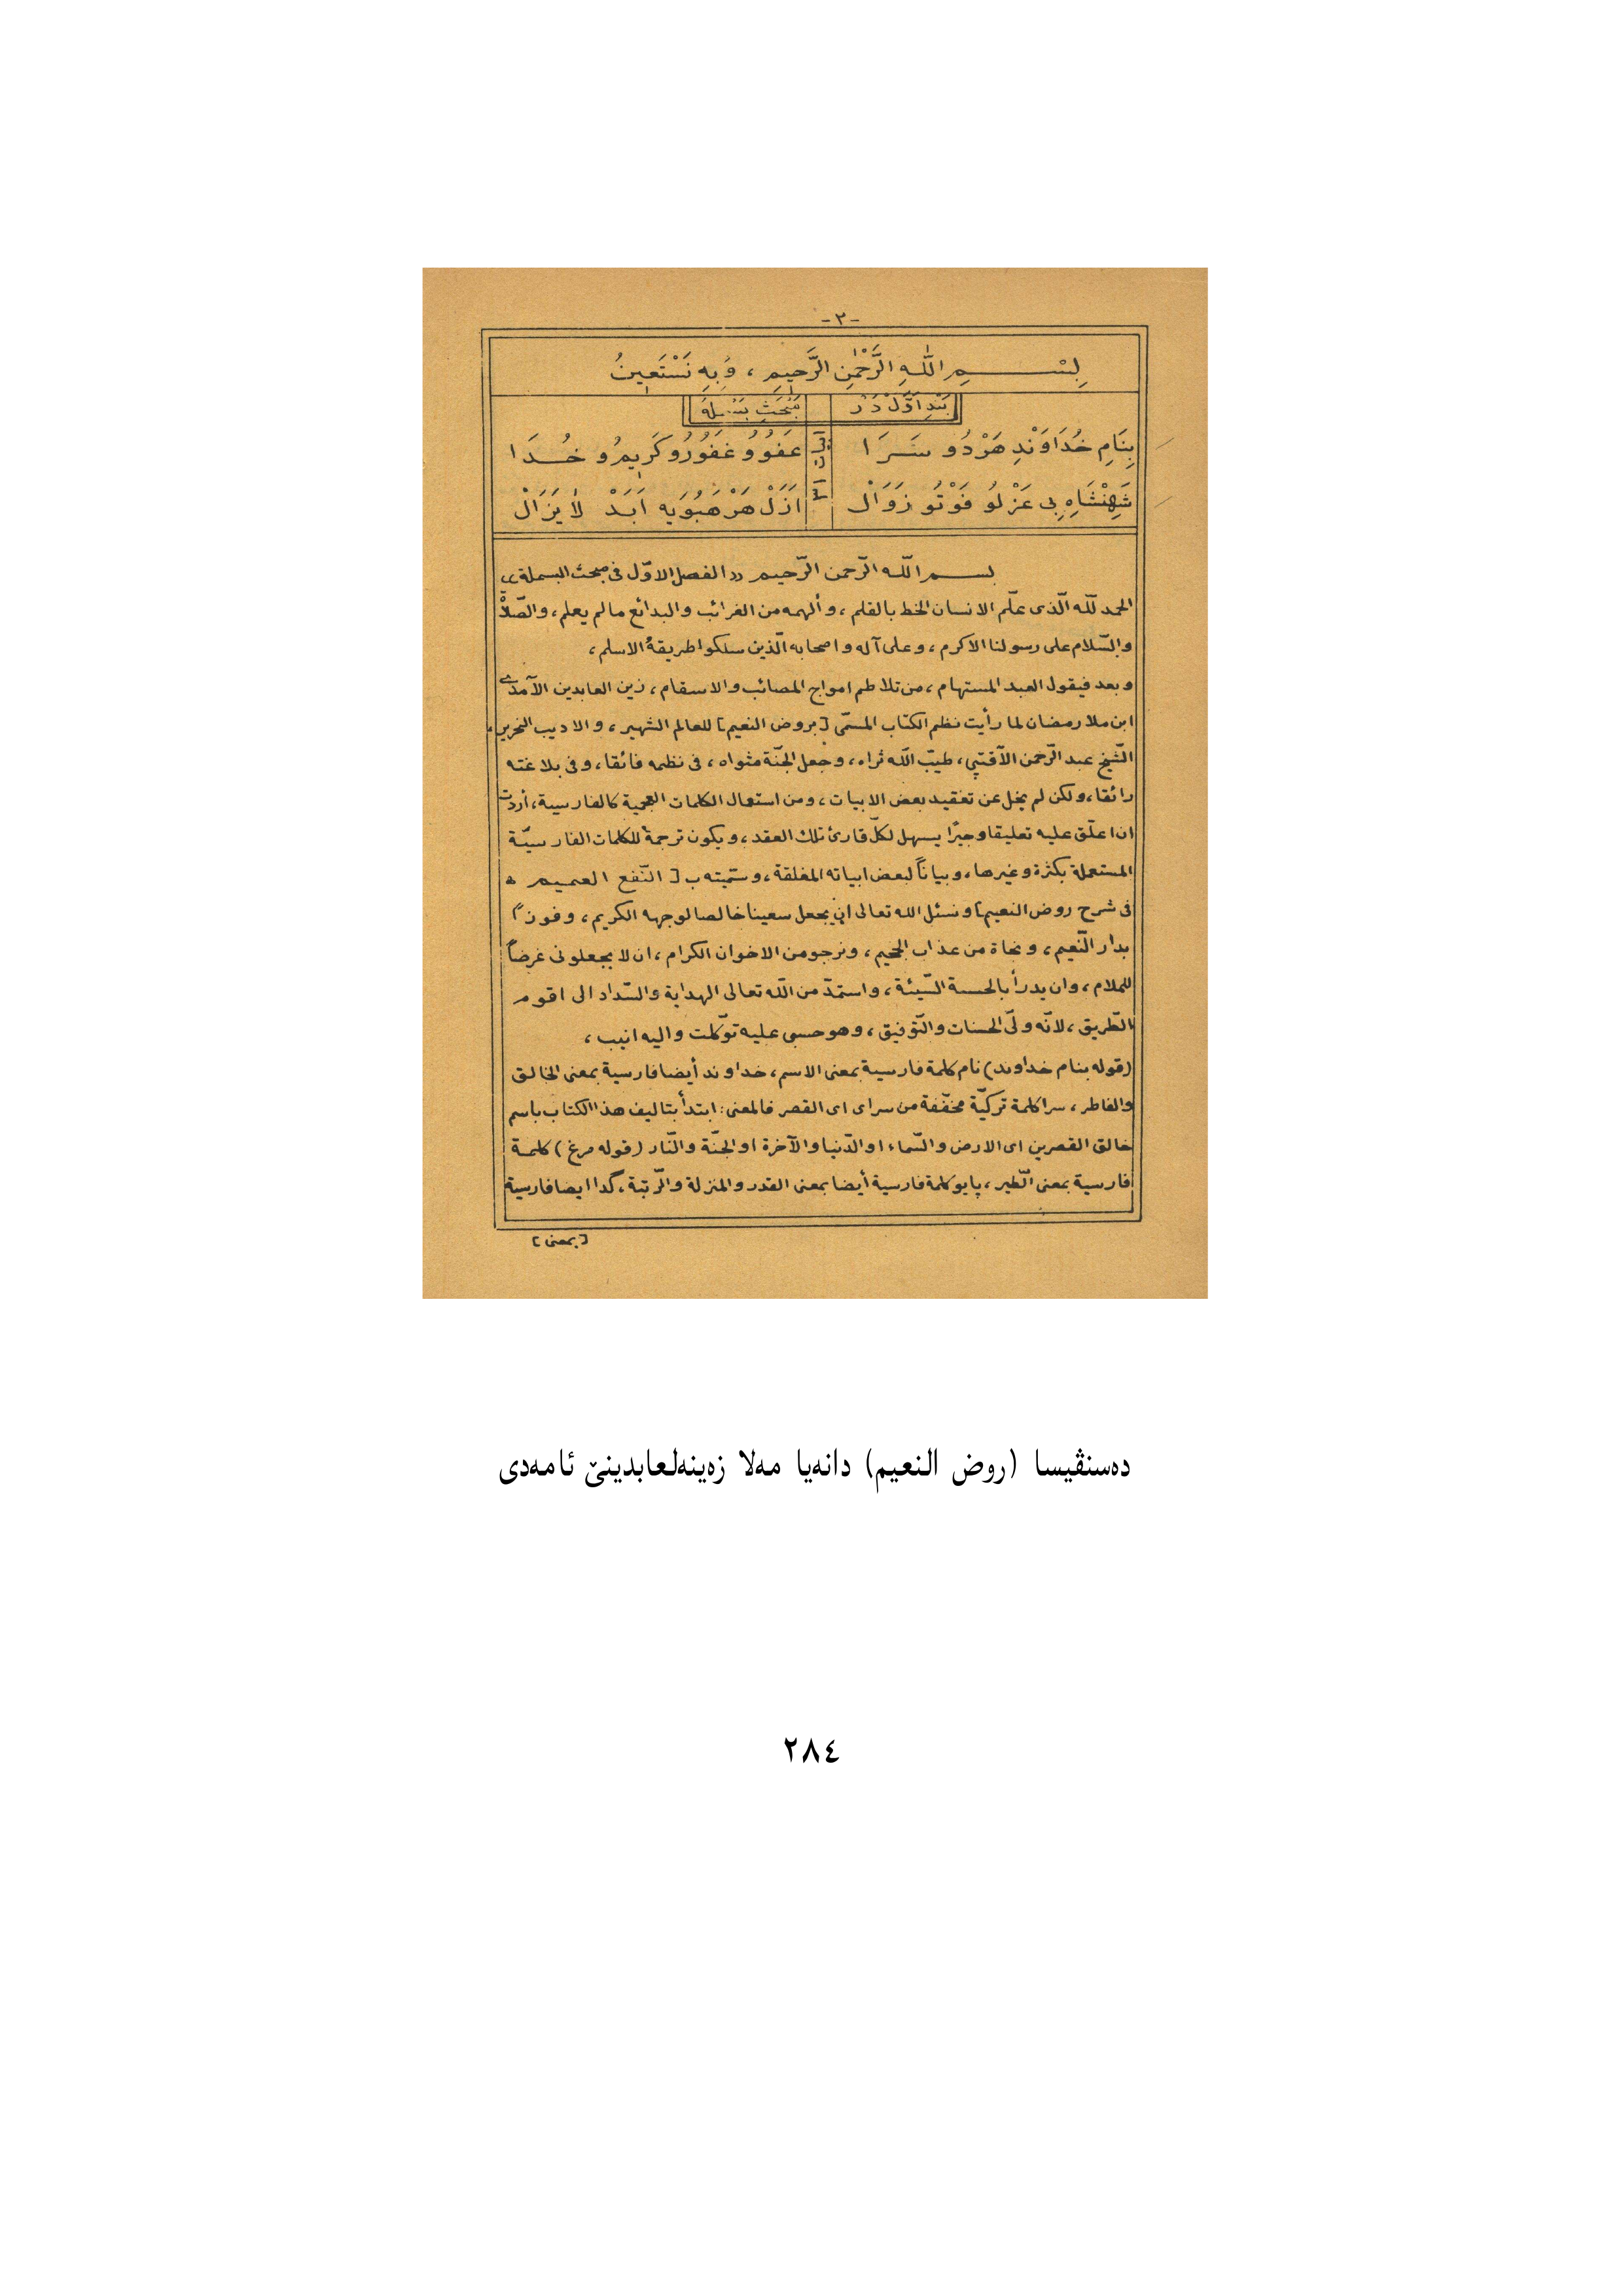 -٢-
بِسْمِ اللّٰهِ الرَّحْمٰنِ الرَّحِيمِ ، وَبِهِ نَسْتَعِينُ
بَنْدِ اَوَّلْ دَرْ مَبْحَثِ بَسْمَلَهْ
بِنَامِ خُدَاوَنْدِ هَرْدُو سَرَا عَفُوُو غَفُورُو كَرِيمُو خُدَا
شَهِنْشَاهِ بِى عَزْلُو فَوْتُو زَوَالْ اَزَلْ هَرْ هَبُويَه اَبَدْ لَا يَزَالْ
بسم اللّه الرّحمن الرّحيم «الفصل الاوّل فى مبحث البسملة»
الحمد للّه الّذى علّم الانسان الخط بالقلم ، وألهمه من الغرائب والبدائع مالم يعلم ، والصّلاة
والسّلام على رسولنا الاكرم ، وعلى آله واصحابه الّذين سلكوا طريقة الاسلم ،
وبعد فيقول العبد المستهام ، من تلاطم امواج المصائب والاسقام ، زين العابدين الآمدى
ابن ملا رمضان لما رأيت نظم الكتاب المسمّى [بروض النعيم] للعالم الشهير ، والاديب النحرير ،
الشّيخ عبد الرّحمن الآقتپى ، طيّب اللّه ثراه ، وجعل الجنّة مثواه ، فى نظمه فائقا ، وفى بلاغته
رائقا ، ولكن لم يخل عن تعقيد بعض الابيات ، ومن استعمال الكلمات العجمية كالفارسية ، أردت
ان اعلّق عليه تعليقا وجيزا يسهل لكلّ قارئ تلك العقد ، ويكون ترجمة للكلمات الفارسيّة
المستعملة بكثرة وغيرها ، وبياناً لبعض ابياته المغلقة ، وسمّيته ب [ النّفع العميم
فى شرح روض النعيم] ونسئل الله تعالى ان يجعل سعينا خالصا لوجهه الكريم ، وفوزاً
بدار النّعيم ، ونجاة من عذاب الجحيم ، ونرجو من الاخوان الكرام ، ان لا يجعلونى غرضاً
للملام ، وان يدرأ بالحسنة السّيئة ، واستمدّ من اللّه تعالى الهداية والسّداد الى اقوم
الطّريق ، لانّه ولىّ الحسنات والتّوفيق ، وهو حسبى عليه توكّلت واليه انيب ،
(قوله بنام خداوند) نام كلمة فارسية بمعنى الاسم ، خداوند أيضا فارسية بمعنى الخالق
والفاطر ، سرا كلمة تركيّة مخفّفة من سراى اى القصر فالمعنى : ابتدأ بتاليف هذا الكتاب باسم
خالق القصرين اى الارض والسّماء او الدّنيا والآخرة او الجنّة والنّار (قوله مرغ) كلمة
فارسية بمعنى الطّير ، پايو كلمة فارسية أيضا بمعنى القدر والمنزلة والرّتبة ، گدا ايضا فارسية
[بمعنى]
دەسنڤیسا (روض النعيم) دانەیا مەلا زەینەلعابدینێ ئامەدی
٢٨٤